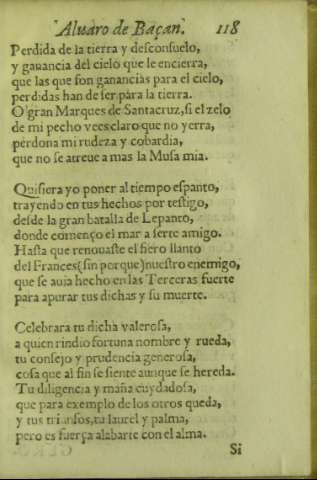 Aluaro de Baçan. 118
Perdida de la tierra y desconsuelo,
y ganancia del cielo que le encierra,
que las que son ganancias para el cielo,
perdidas han de ser para la tierra.
O gran Marques de Santacruz, si el zelo
de mi pecho vees claro que no yerra,
perdona mi rudeza y cobardia,
que no se atreue a mas la Musa mia.
Quisiera yo poner al tiempo espanto,
trayendo en tus hechos por testigo,
desde la gran batalla de Lepanto,
donde començo el mar a serte amigo.
Hasta que renouaste el fiero llanto
del Frances (sin porque) nuestro enemigo,
que se auia hecho en las Terceras fuerte
para apurar tus dichas y su muerte.
Celebrara tu dicha valerosa,
a quien rindio fortuna nombre y rueda,
tu consejo y prudencia generosa,
cosa que al fin se siente aunque se hereda.
Tu diligencia y maña cuydadosa,
que para exemplo de los otros queda,
y tus triunfos, tu laurel y palma,
pero es fuerça alabarte con el alma.
Si